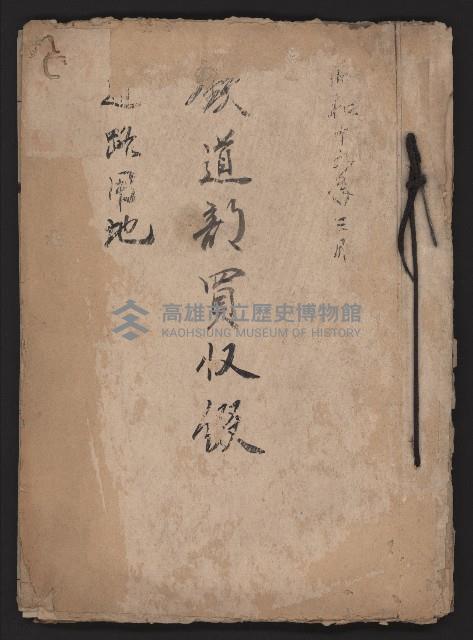 昭和十九年三月
鉄道部買収綴
道路用地
高雄市立歷史博物館
KAOHSIUNG MUSEUM OF HISTORY